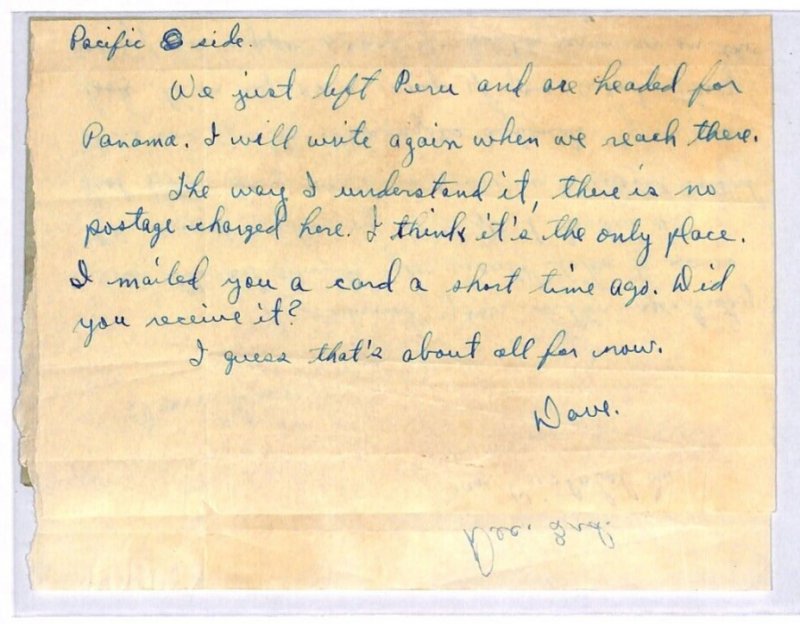 Pacific side.
We just left Peru and are headed for
Panama. I will write again when we reach there.
The way I understand it, there is no
postage charged here. I think it's the only place.
I mailed you a card a short time ago. Did
you receive it?
I guess that's about all for now.
Dave.
Dec. 2nd.